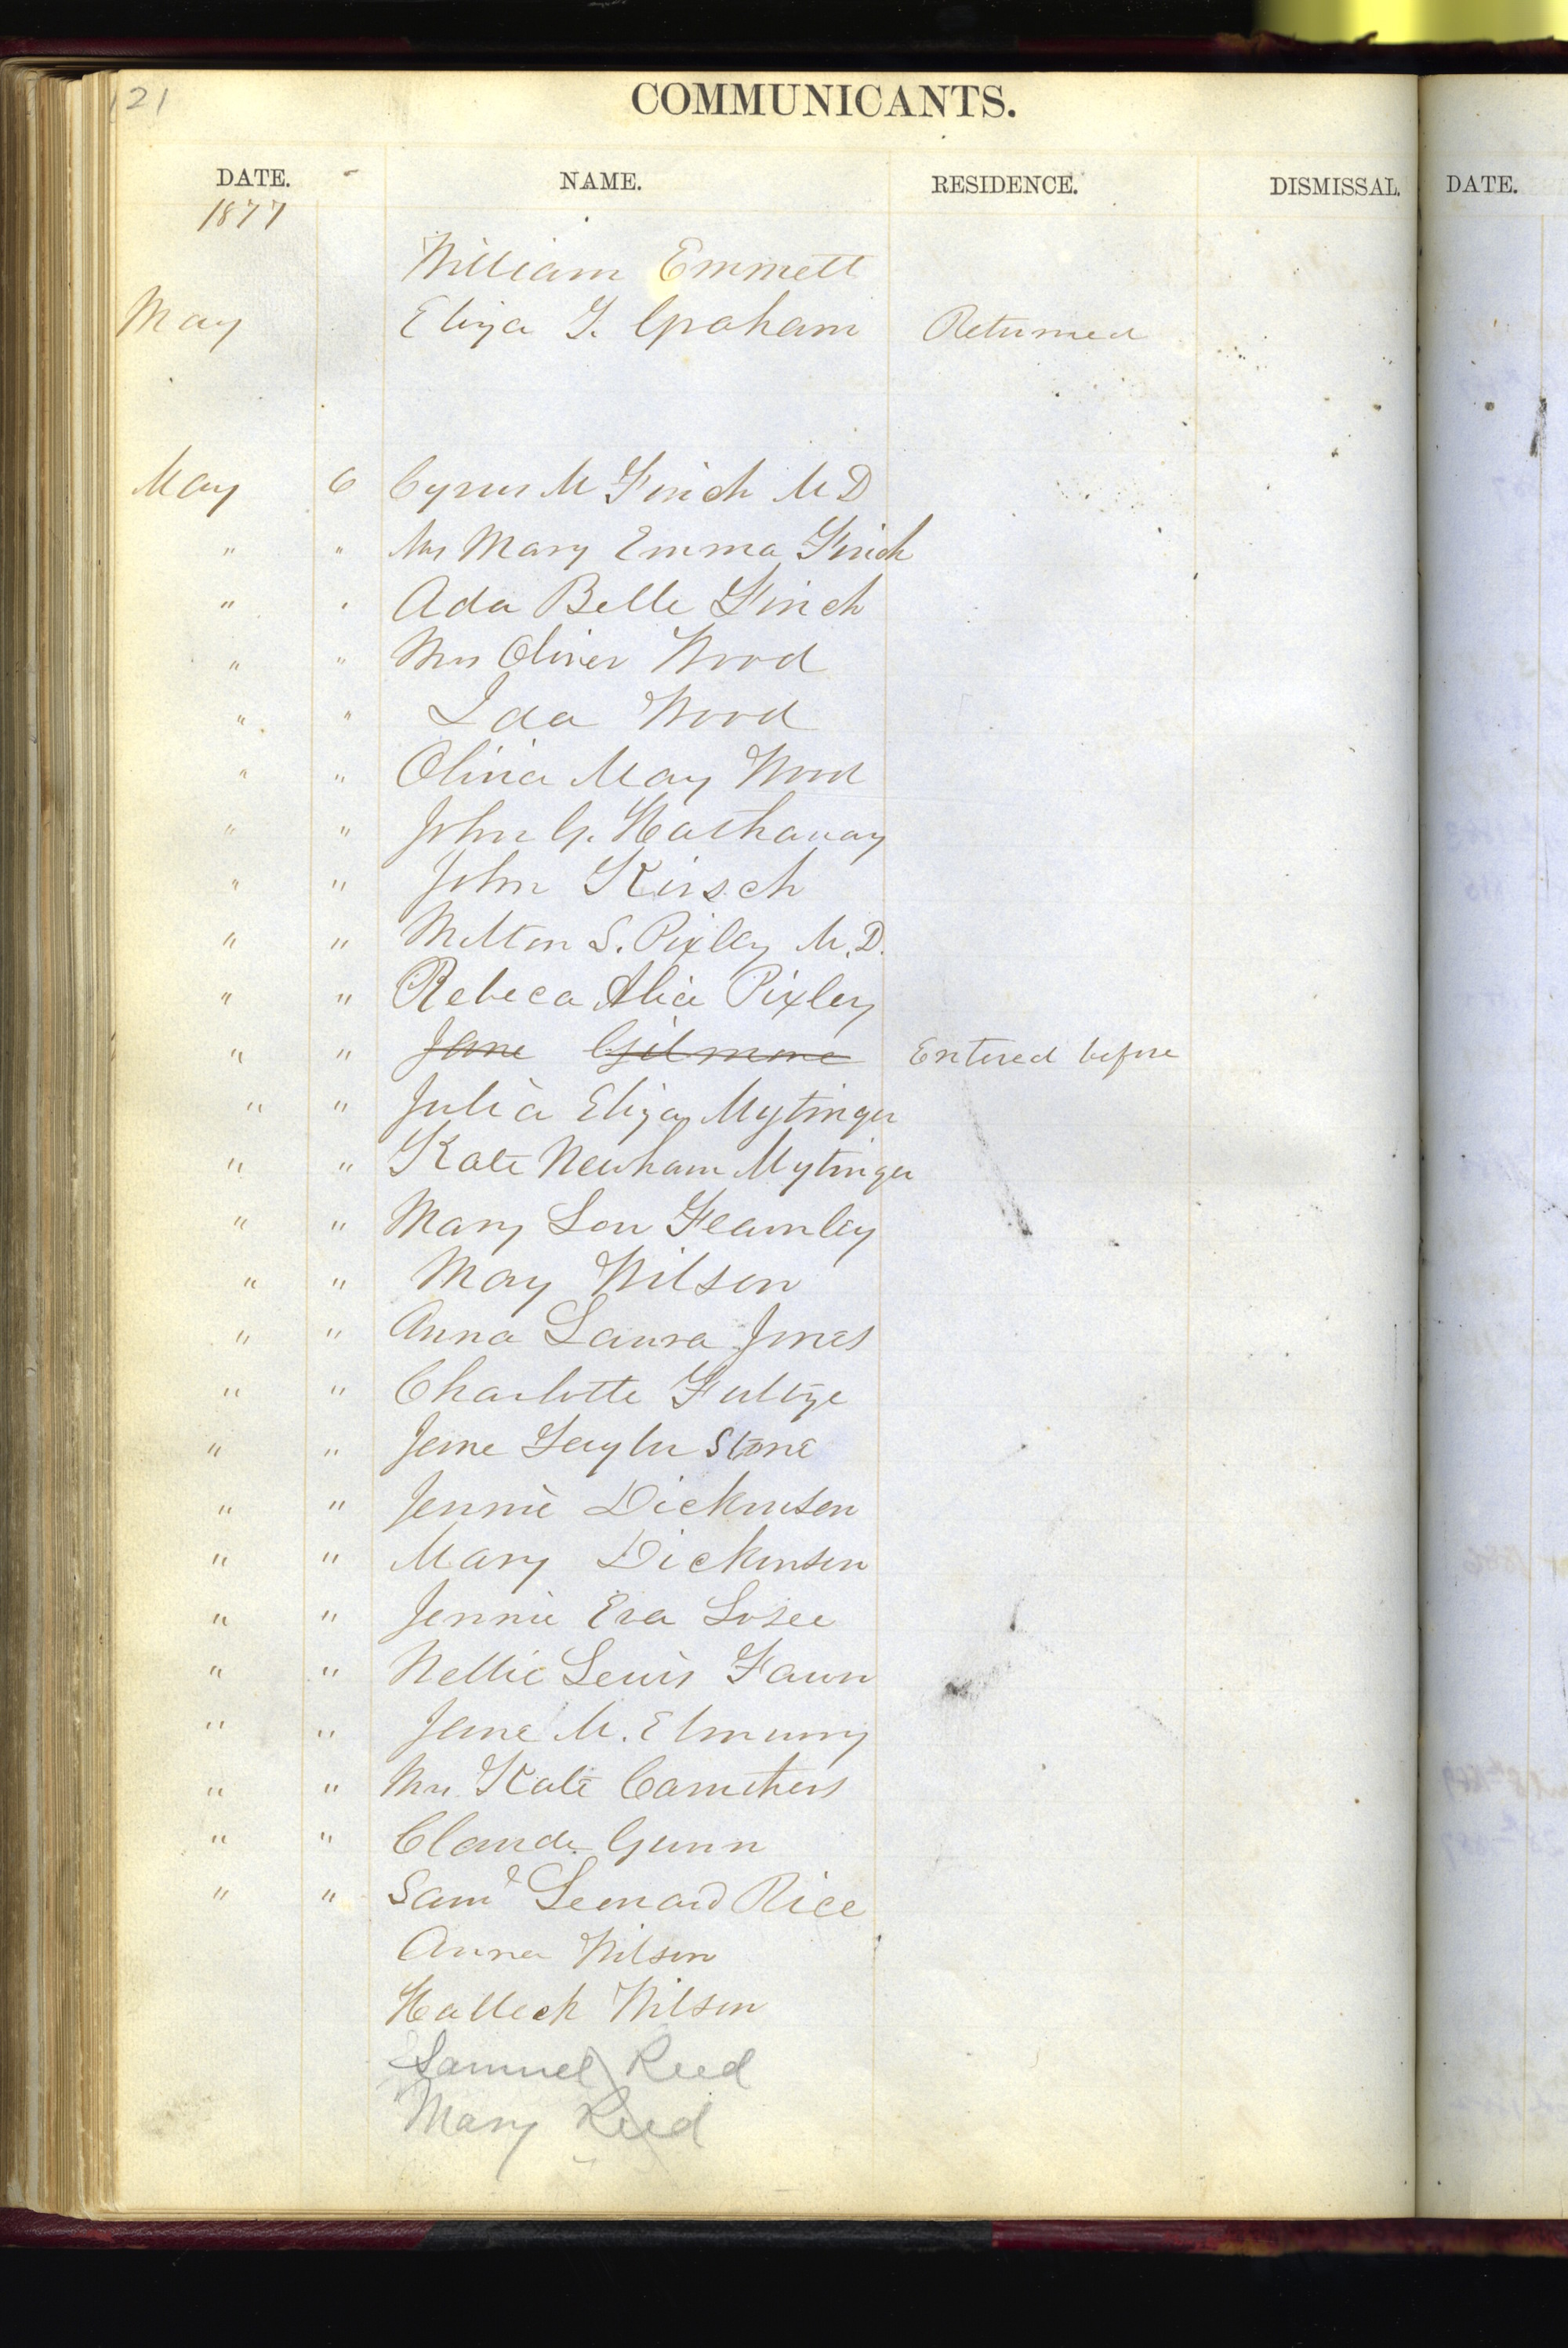 121
COMMUNICANTS.
DATE. NAME. RESIDENCE. DISMISSAL. DATE.
1877
William Emmett
May Eliza G. Graham Returned
May 6 Cyrus M Finch M D
" " Mrs Mary Emma Finch
" " Ada Belle Finch
" " Mrs Oliver Wood
" " Ida Wood
" " Olivia May Wood
" " John G. Hathaway
" " John Kirsch
" " Milton S. Pixley M.D.
" " Rebeca Alice Pixley
" " Jane Gilmore Entered before
" " Julia Eliza Mytinger
" " Kate Newham Mytinger
" " Mary Lou Fearnley
" " May Wilson
" " Anna Laura Jones
" " Charlotte Fultze
" " Jane Taylor Stone
" " Jennie Dickinson
" " Mary Dickinson
" " Jennie Eva Losee
" " Nellie Lewis Fawn
" " Jane M.
" " Mrs Kate Caruthers
" " Claude Gunn
" " Saml Leonard Rice
Anna Wilson
Halleck Wilson
Samuel Reed
Mary Reed